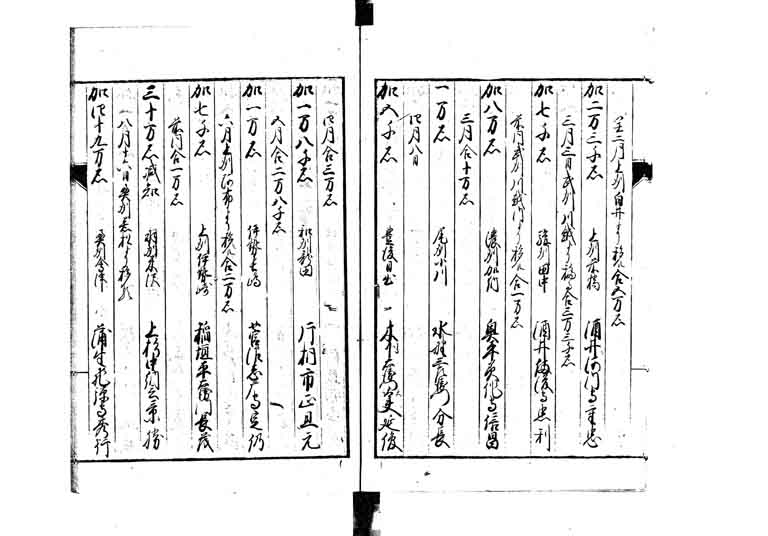 至二月上州白井より移ル合五万石
加二万三千石　上州前橋　酒井河内守重忠
三月三日武州川越より移ル合三万三千石
加七千石　駿州田中　酒井備後守忠利
前同武州川越内より移ル合一万石
加八万石　濃州加納　奥平美作守信昌
三月合十万石
一万石　尾州小川　水野三左衛門分長
四月八日
加五千石　豊後日出　木下右衛門大夫延俊
四月合三万石
加一万八千石　和州龍田　片桐市正且元
五月合二万八千石
加一万石　伊勢長嶋　菅沼志摩守定仍
六月上州阿布より移ル合二万石
加七千石　上州伊勢崎　稲垣平右衛門長茂
前同合一万石
三十万石減知　羽州米沢　上杉中納言景勝
八月　奥州　より移ル
加四十九万石　奥州会津　蒲生飛騨守秀行